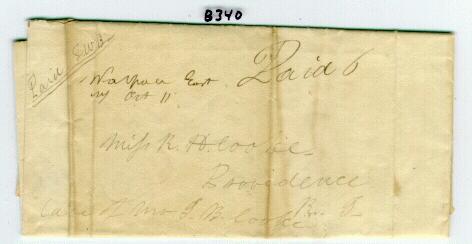 B340
Paid S.W.B.
Walpole East Paid 6
Oct 11
Miss R. H. Cooke
Providence
Care of Mr J. B. Cooke R. I.